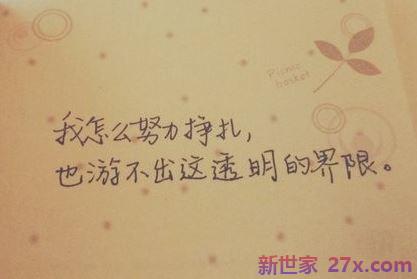 Picnic
basket
我怎么努力挣扎，
也游不出这透明的界限。
新世家 27x.com